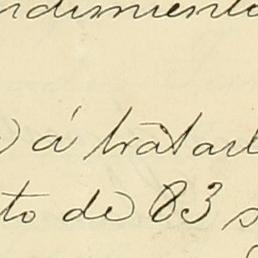 ndimiento
á tratarl
to de 83 s